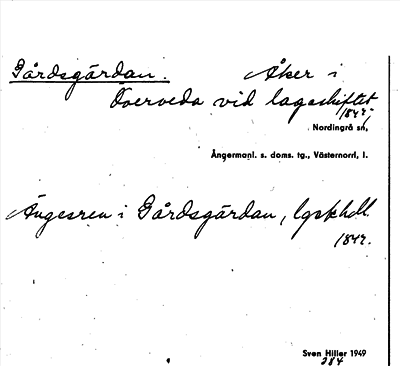 Gårdsgärdan. Åker i
Överveda vid lagaskiftet
1844;
Nordingrå sn,
Ångermanl. s. doms. tg., Västernorrl, l.
Ängesren i Gårdsgärdan, lgskhdl.
1844.
Sven Hiller 1949
284